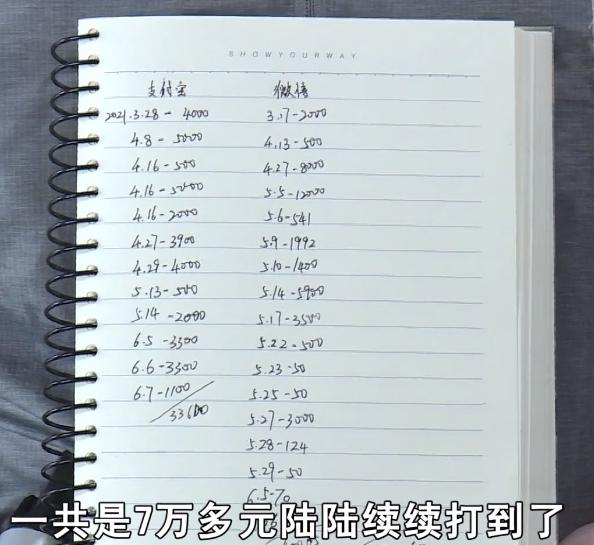 SHOWYOURWAY
支付宝 微信
2021.3.28-4000 3.17-2000
4.8-5000 4.13-500
4.16-500 4.27-8000
4.16-5000 5.5-12000
4.16-2000 5.6-541
4.27-3900 5.9-1992
4.29-4000 5.10-1400
5.13-500 5.14-5900
5.14-2000 5.17-3500
6.5-3300 5.22-500
6.6-3300 5.23-50
6.7-1100 5.25-50
5.27-3000
5.28-124
5.29-50
6.5-70
一共是7万多元陆陆续续打到了